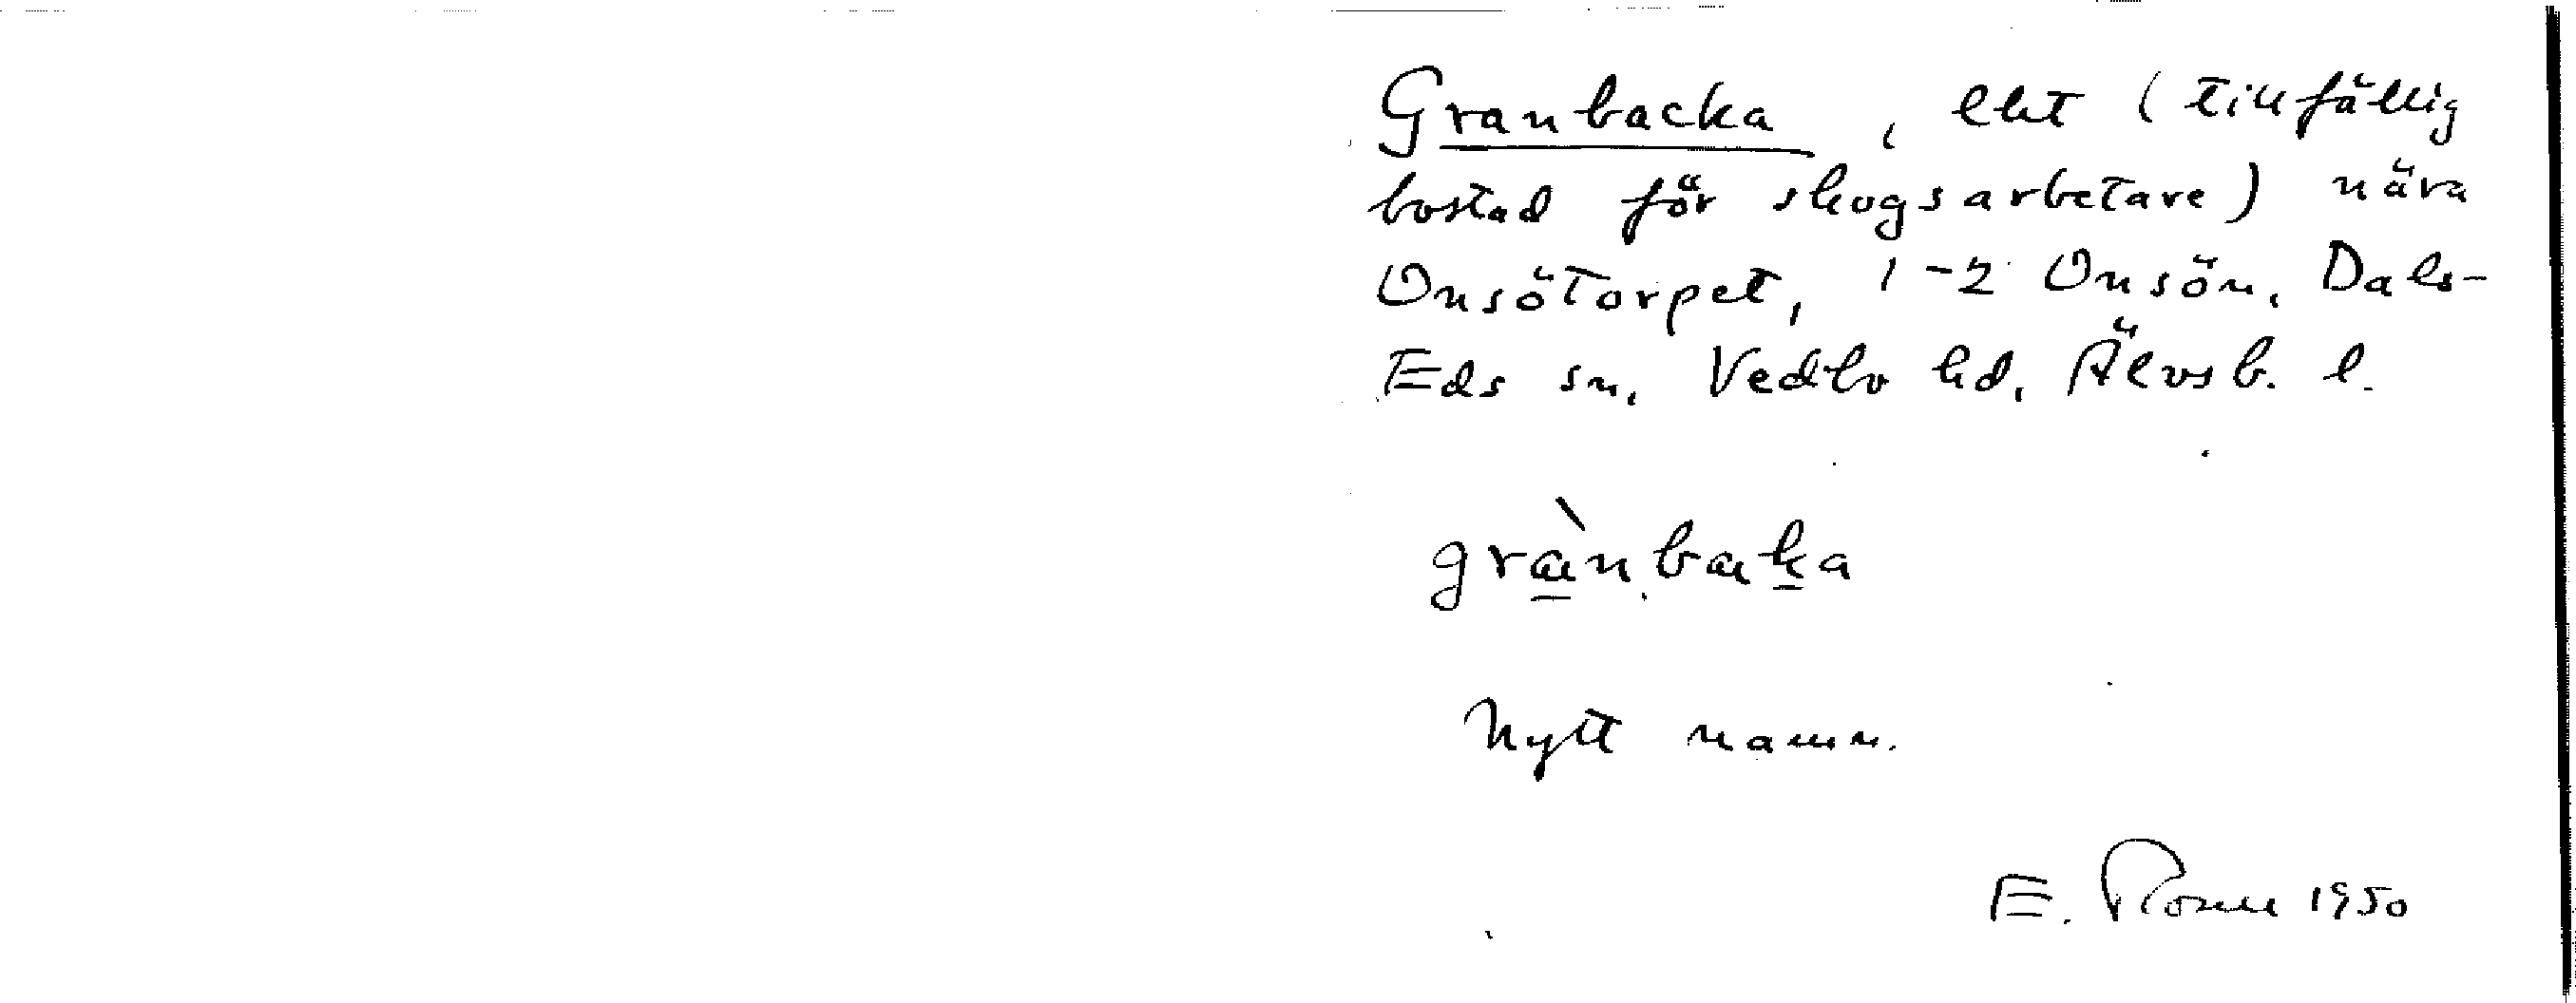 Granbacka, lht (tillfällig
bostad för skogsarbetare) nära
Onsötorpet, 1-2 Onsön, Dals-
Eds sn, Vedbo hd, Älvsb. l.
grànbaka
Nytt namn.
E. 1950